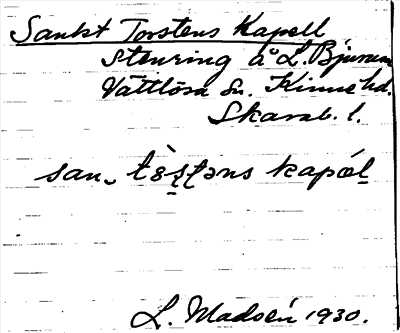 Sankt Torstens Kapell
Stenring å L. Bjurum
Vättlösa sn. Kinne hd.
Skarab. l.
san‿ tɞ̀ṣṭəns kapǽl
L. Madsén 1930.